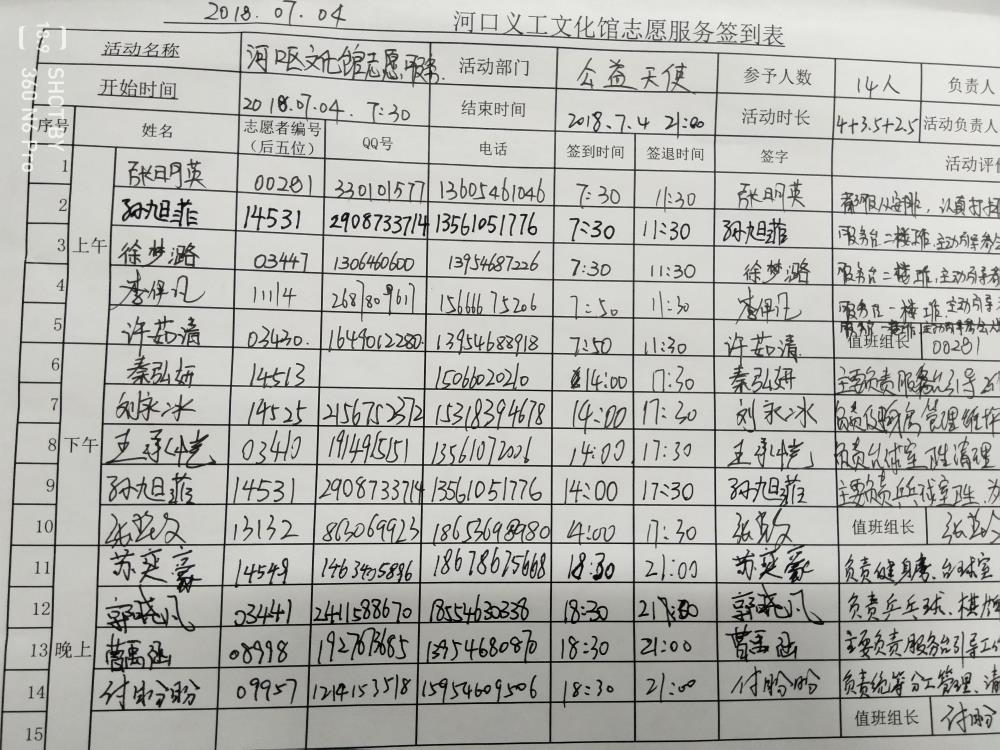 2018.07.04 河口义工文化馆志愿服务签到表
活动名称 河口区文化馆志愿服务 活动部门 公益天使 参予人数 14人 负责人
开始时间 2018.07.04. 7:30 结束时间 2018.7.4 21:00 活动时长 4+3.5+2.5 活动负责人
序号 姓名 志愿者编号（后五位） QQ号 电话 签到时间 签退时间 签字 活动评
上午
1 张明英 00281 330101577 13605461046 7:30 11:30 张明英
2 孙旭菲 14531 2908733714 13561051776 7:30 11:30 孙旭菲 服务台二楼工作
3 徐梦潞 03447 1306460600 13954687226 7:30 11:30 徐梦潞 服务台二楼工作,主动引导
4 11114 15666675206 7:50 11:30 服务台一楼工作 主动引导
5 许茹清 03430 1649012280 13954688918 7:50 11:30 许茹清 值班组长 00281
下午
6 秦弘妍 14513 15066020210 14:00 17:30 秦弘妍 主要负责服务台引导
7 刘永冰 14525 2156752372 15318394678 14:00 17:30 刘永冰 管理维持
8 王承恺 03410 1914915151 13561072026 14:00 17:30 王承恺 负责台球室 卫生清理
9 孙旭菲 14531 2908733714 13561051776 14:00 17:30 孙旭菲 主要负责乒乓球室卫生,为
10 13132 863069923 18653698980 14:00 17:30 值班组长
晚上
11 苏奕豪 14549 1463405896 18678675668 18:30 21:00 苏奕豪 负责健身房、台球室
12 郭晓凡 03441 2411588670 18554630338 18:30 21:00 郭晓凡 负责乒乓球、棋牌
13 曹禹涵 08998 1927673685 13954680870 18:30 21:00 曹禹涵 主要负责服务台引导工作
14 付盼盼 09957 1214153518 15954609506 18:30 21:00 付盼盼 负责统筹分工管理、清
15 值班组长 付盼
SHOT BY 360N6 Pro